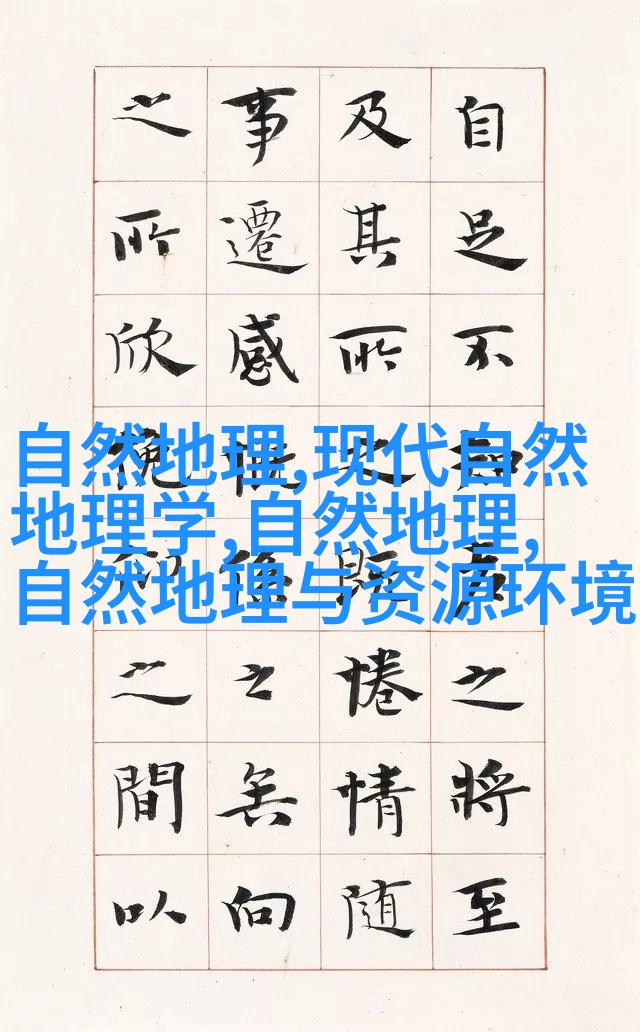 自足不知老之將至
及其所之既惓情随
事遷感慨係之矣向
之所欣俛仰之間以
自然地理,现代自然
地理学,自然地理,
自然地理与资源环境